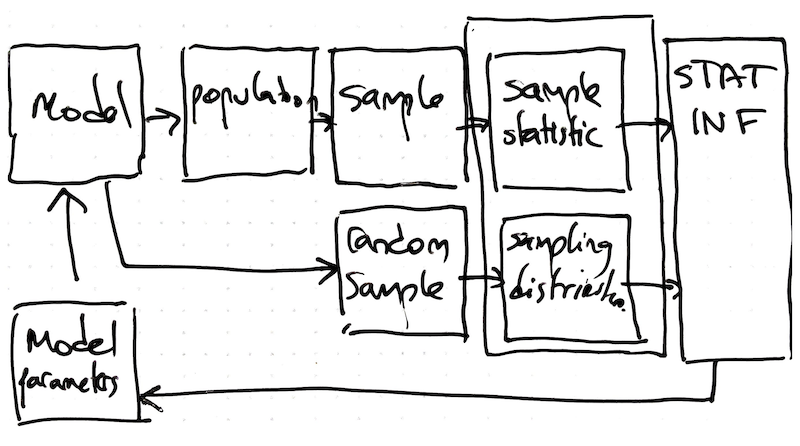 Model
population
sample
sample
statistic
STAT
INF
random
sample
sampling
Model
parameters